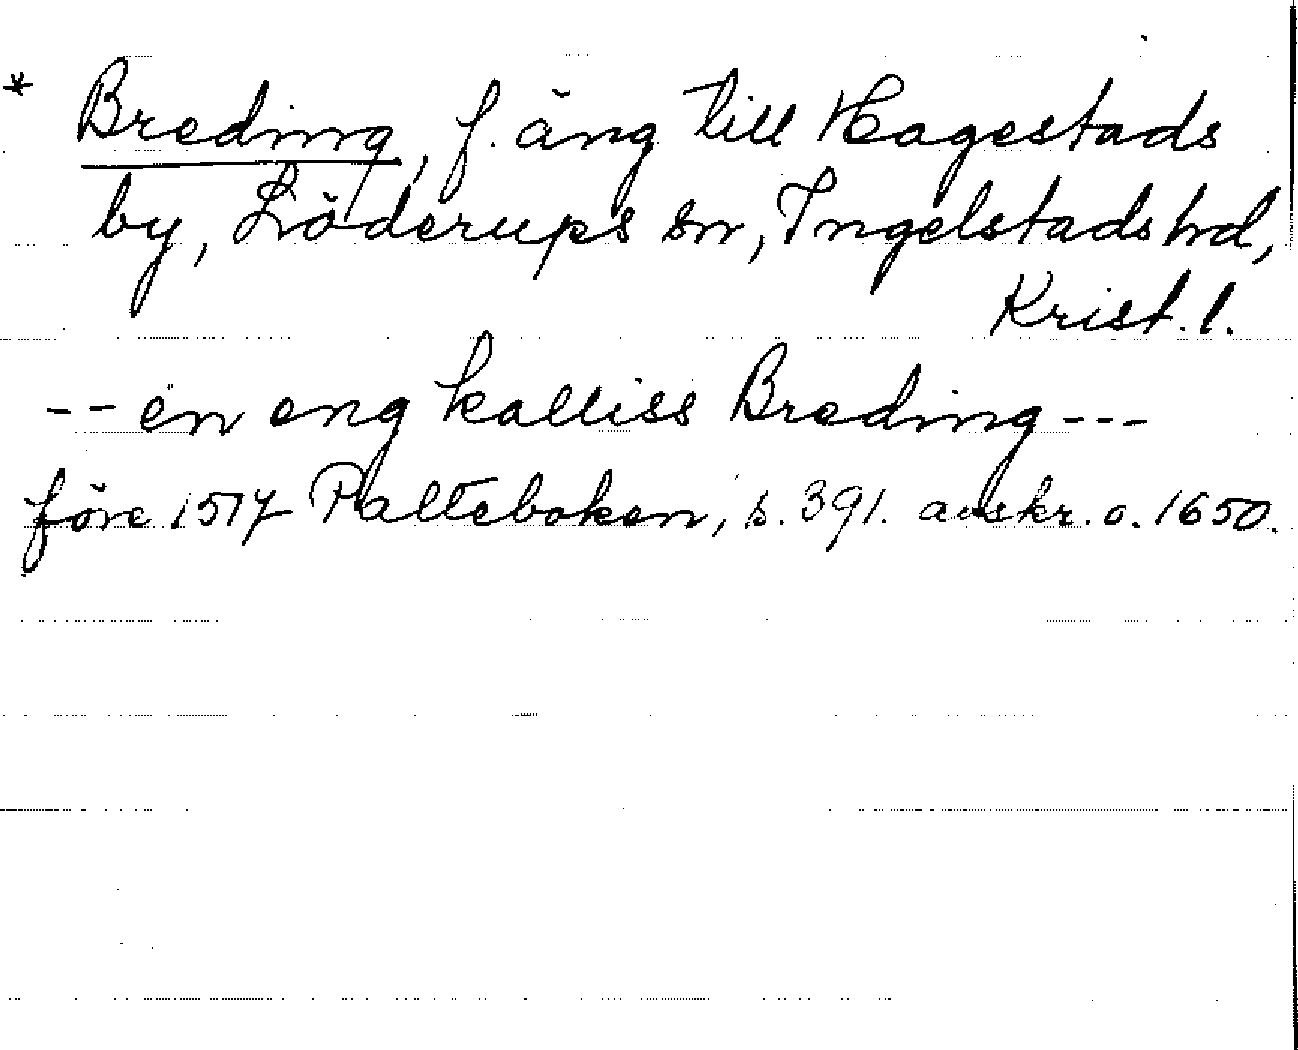 * Breding, f. äng till Hagestads
by, Löderups sn, Ingelstads hd,
Krist. l.
-- en eng kalliss Breding ---
före 1517 Palteboken, s. 391. avskr. o. 1650.